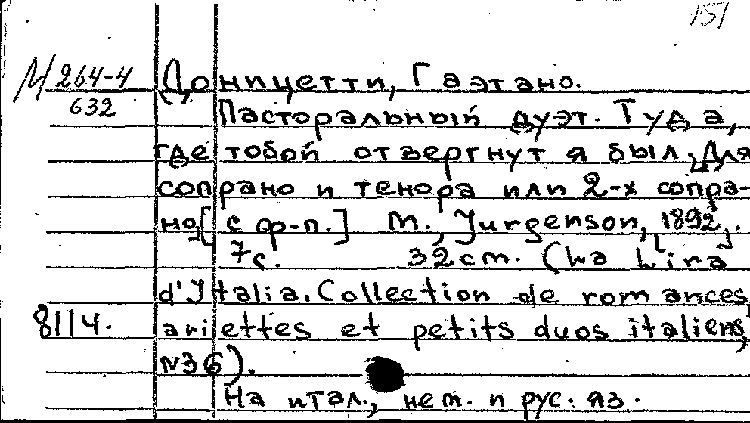 151
М 264-4 Доницетти, Гаэтано.
632 Пасторальный дуэт. Туда,
где тобой отвергнут я был. Для
сопрано и тенора или 2-х сопра-
но [с ф-п.] М., Jurgenson, 1892.
7с. 32cm. (La Lira
d'Italia. Collection de romances,
8114. ariettes et petits duos italiens,
N36).
На итал., нем. и рус. яз.